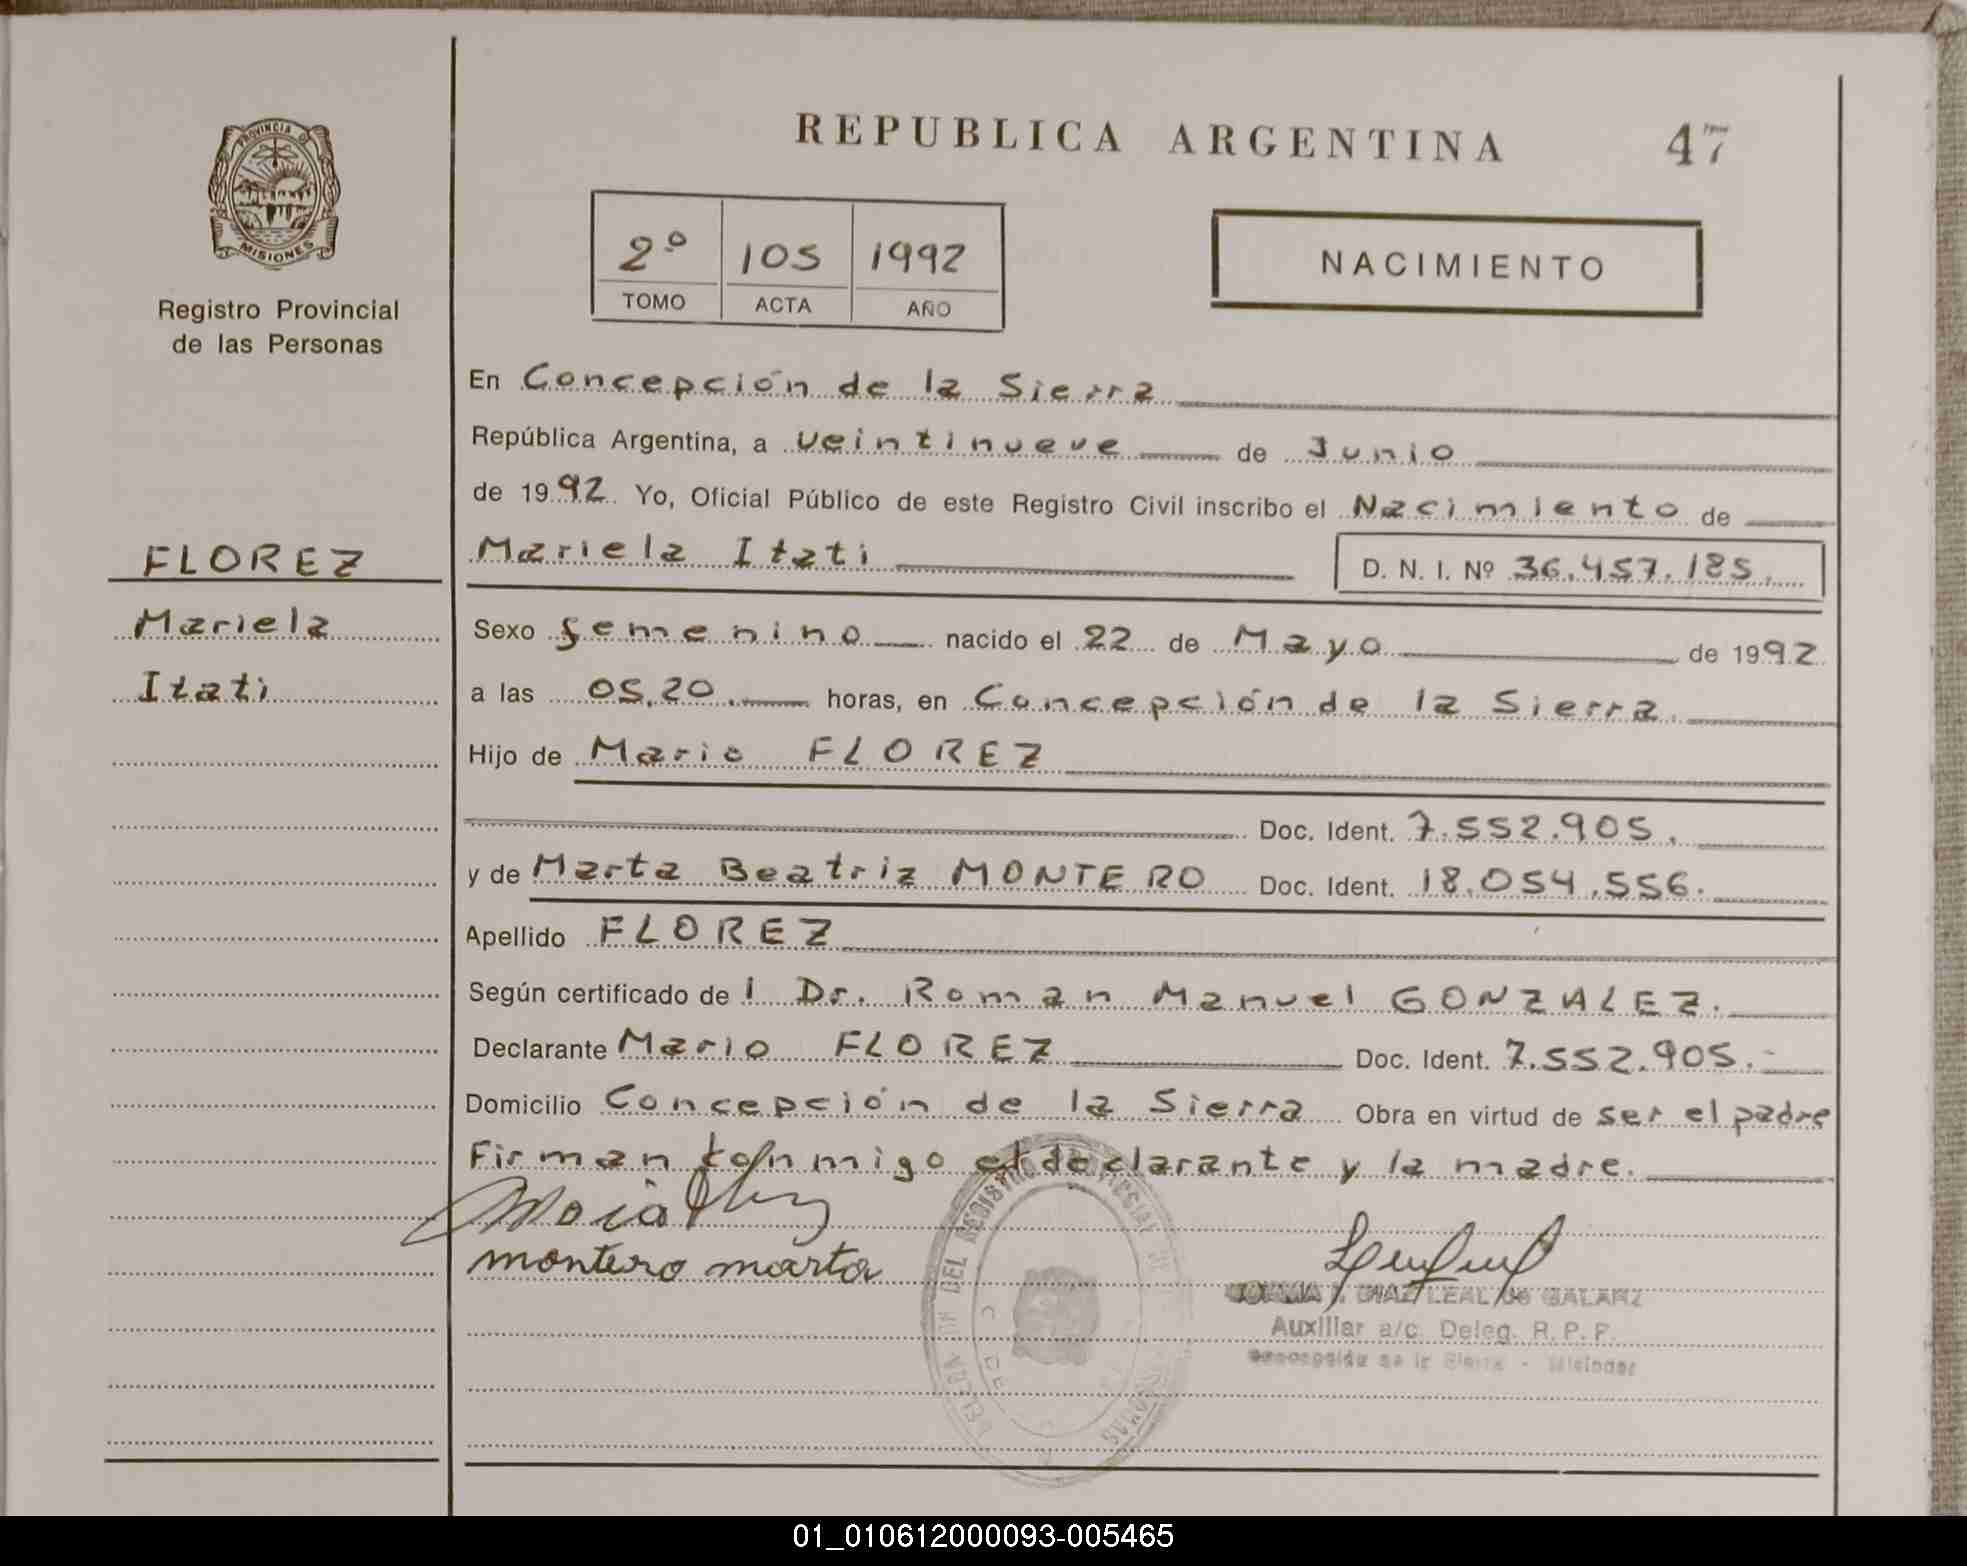 REPUBLICA ARGENTINA
47
PROVINCIA DE
MISIONES
Registro Provincial
de las Personas
2º 105 1992
TOMO ACTA AÑO
NACIMIENTO
FLOREZ
Mariela
Itati
En Concepción de la Sierra
República Argentina, a veintinueve de Junio
de 1992 Yo, Oficial Público de este Registro Civil inscribo el Nacimiento de
Mariela Itati D. N. I. Nº 36.457.185.
Sexo femenino nacido el 22 de Mayo de 1992
a las 05.20. horas, en Concepción de la Sierra.
Hijo de Mario FLOREZ
Doc. Ident. 7.552.905.
y de Marta Beatriz MONTERO Doc. Ident. 18.054.556.
Apellido FLOREZ
Según certificado de l Dr. Roman Manuel GONZALEZ.
Declarante Mario FLOREZ Doc. Ident. 7.552.905.-
Domicilio Concepción de la Sierra Obra en virtud de ser el padre
Firman conmigo el declarante y la madre.
montero marta
DIAZ LEAL de GALARZ
Auxiliar a/c Deleg. R. P. P.
Sierra - Misiones
DEL REGISTRO PROVINCIAL DE
01_010612000093-005465